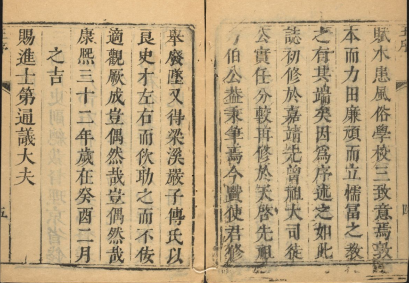 賦水患風俗學校三致意焉敦
本而力田廉頑而立懦富之教
之有其端矣因為序述之如此
誌初修於嘉靖先曾祖大司徒
公實任分較再修於天啓先祖
伯公益秉筆焉今賢使君修
舉廢墜又得梁溪嚴子傳氏以
良史才左右而佽助之而不佞
適觀厥成豈偶然哉豈偶然哉
康熙三十二年歲在癸酉二月
之吉
賜進士第通議大夫
五